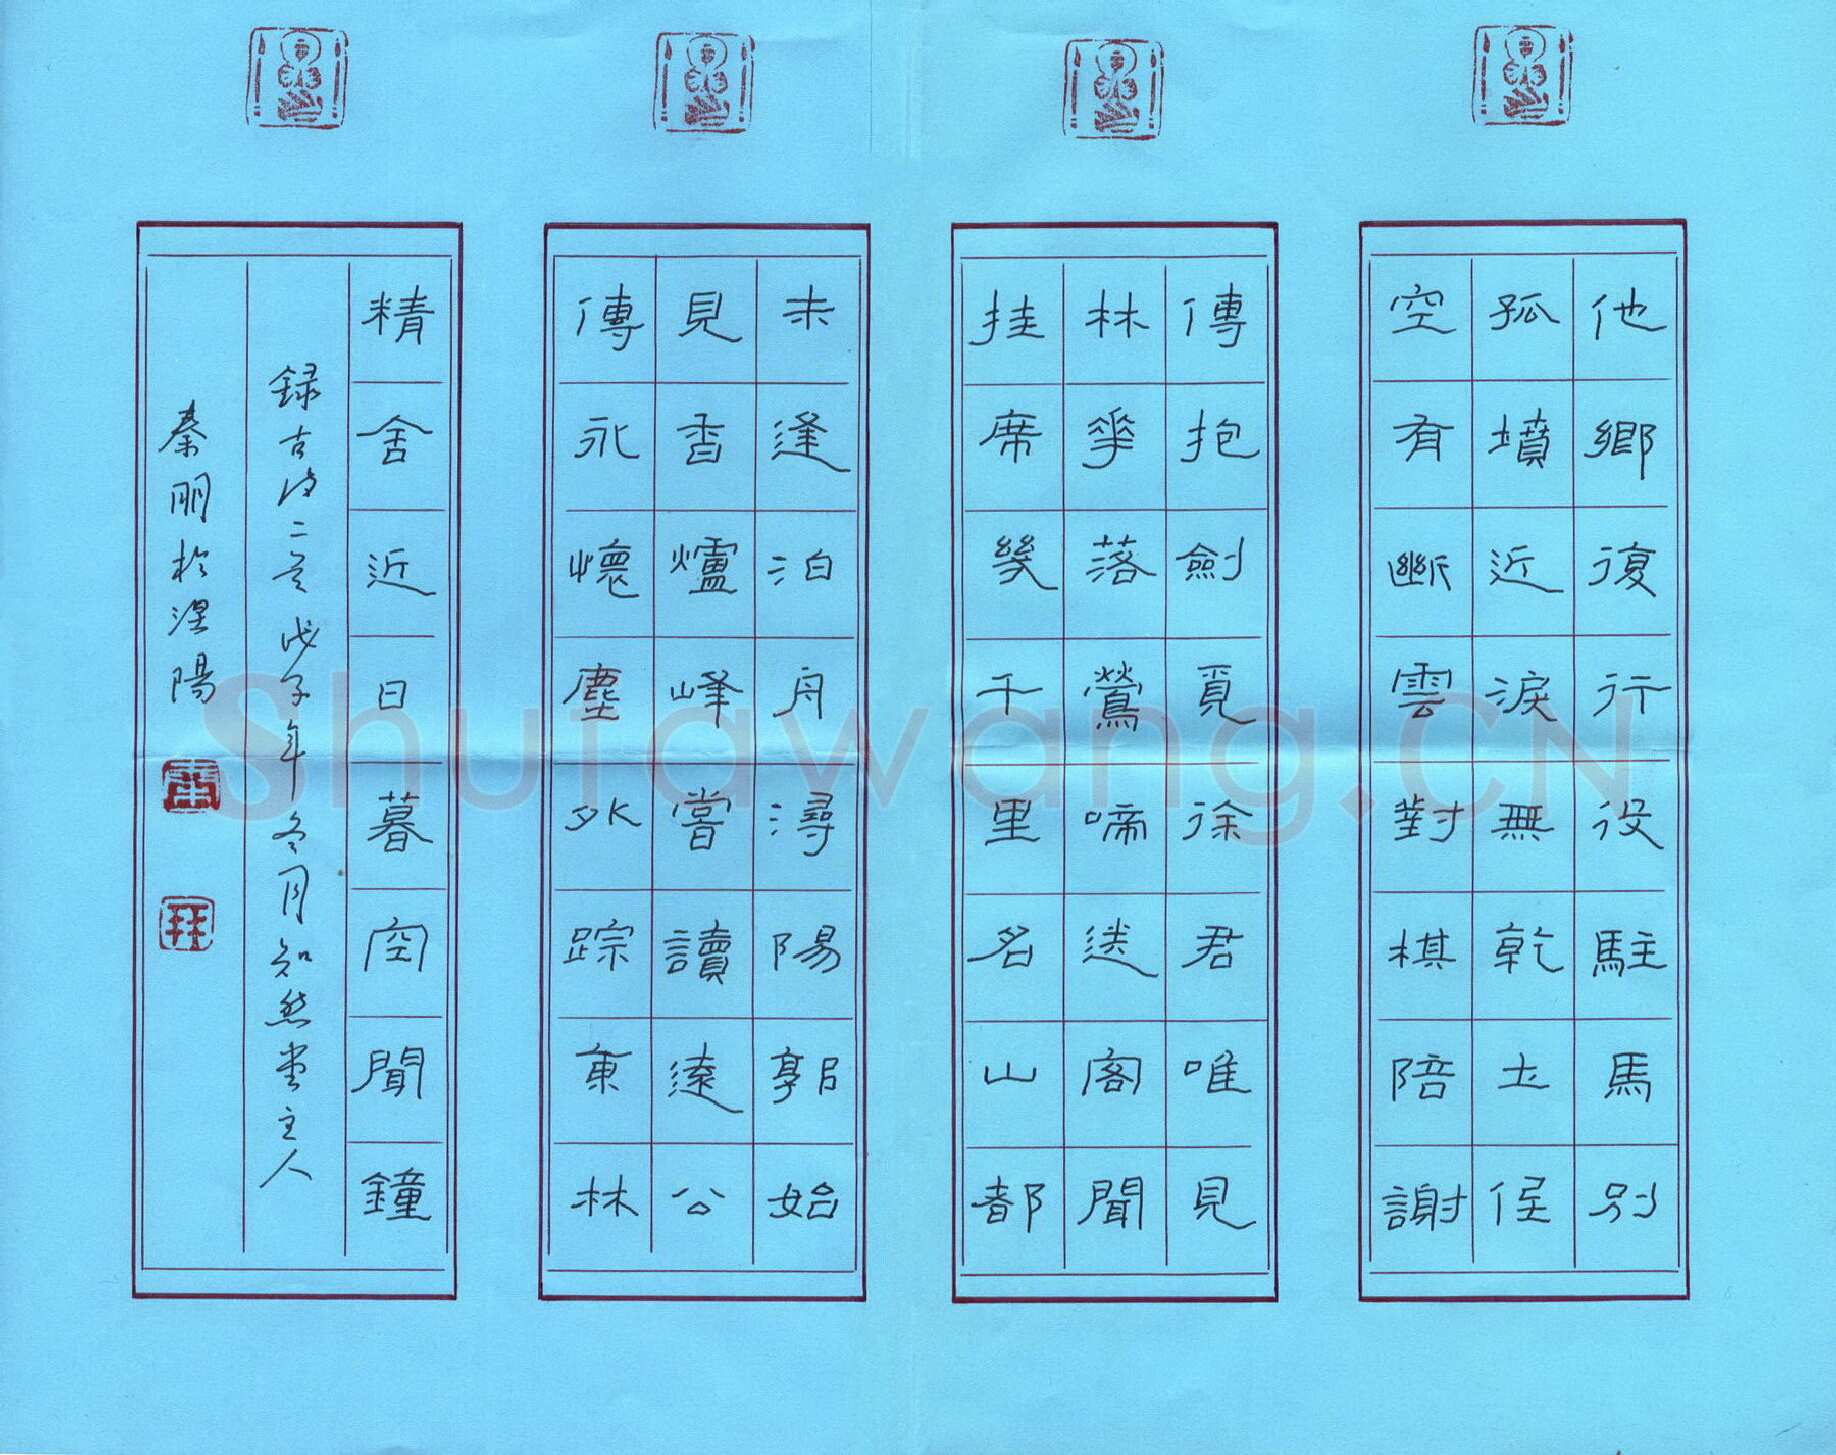 他鄉復行役駐馬別
孤墳近淚無乾土低
空有斷雲對棋陪謝
傅抱劍覓徐君唯見
林花落鶯啼送客聞
挂席幾千里名山都
未逢泊舟潯陽郭始
見香爐峰嘗讀遠公
傳永懷塵外踪東林
精舍近日暮空聞鐘
録古詩二首戊子年冬月知然堂主人
秦朋於涅陽
Shufawang.CN